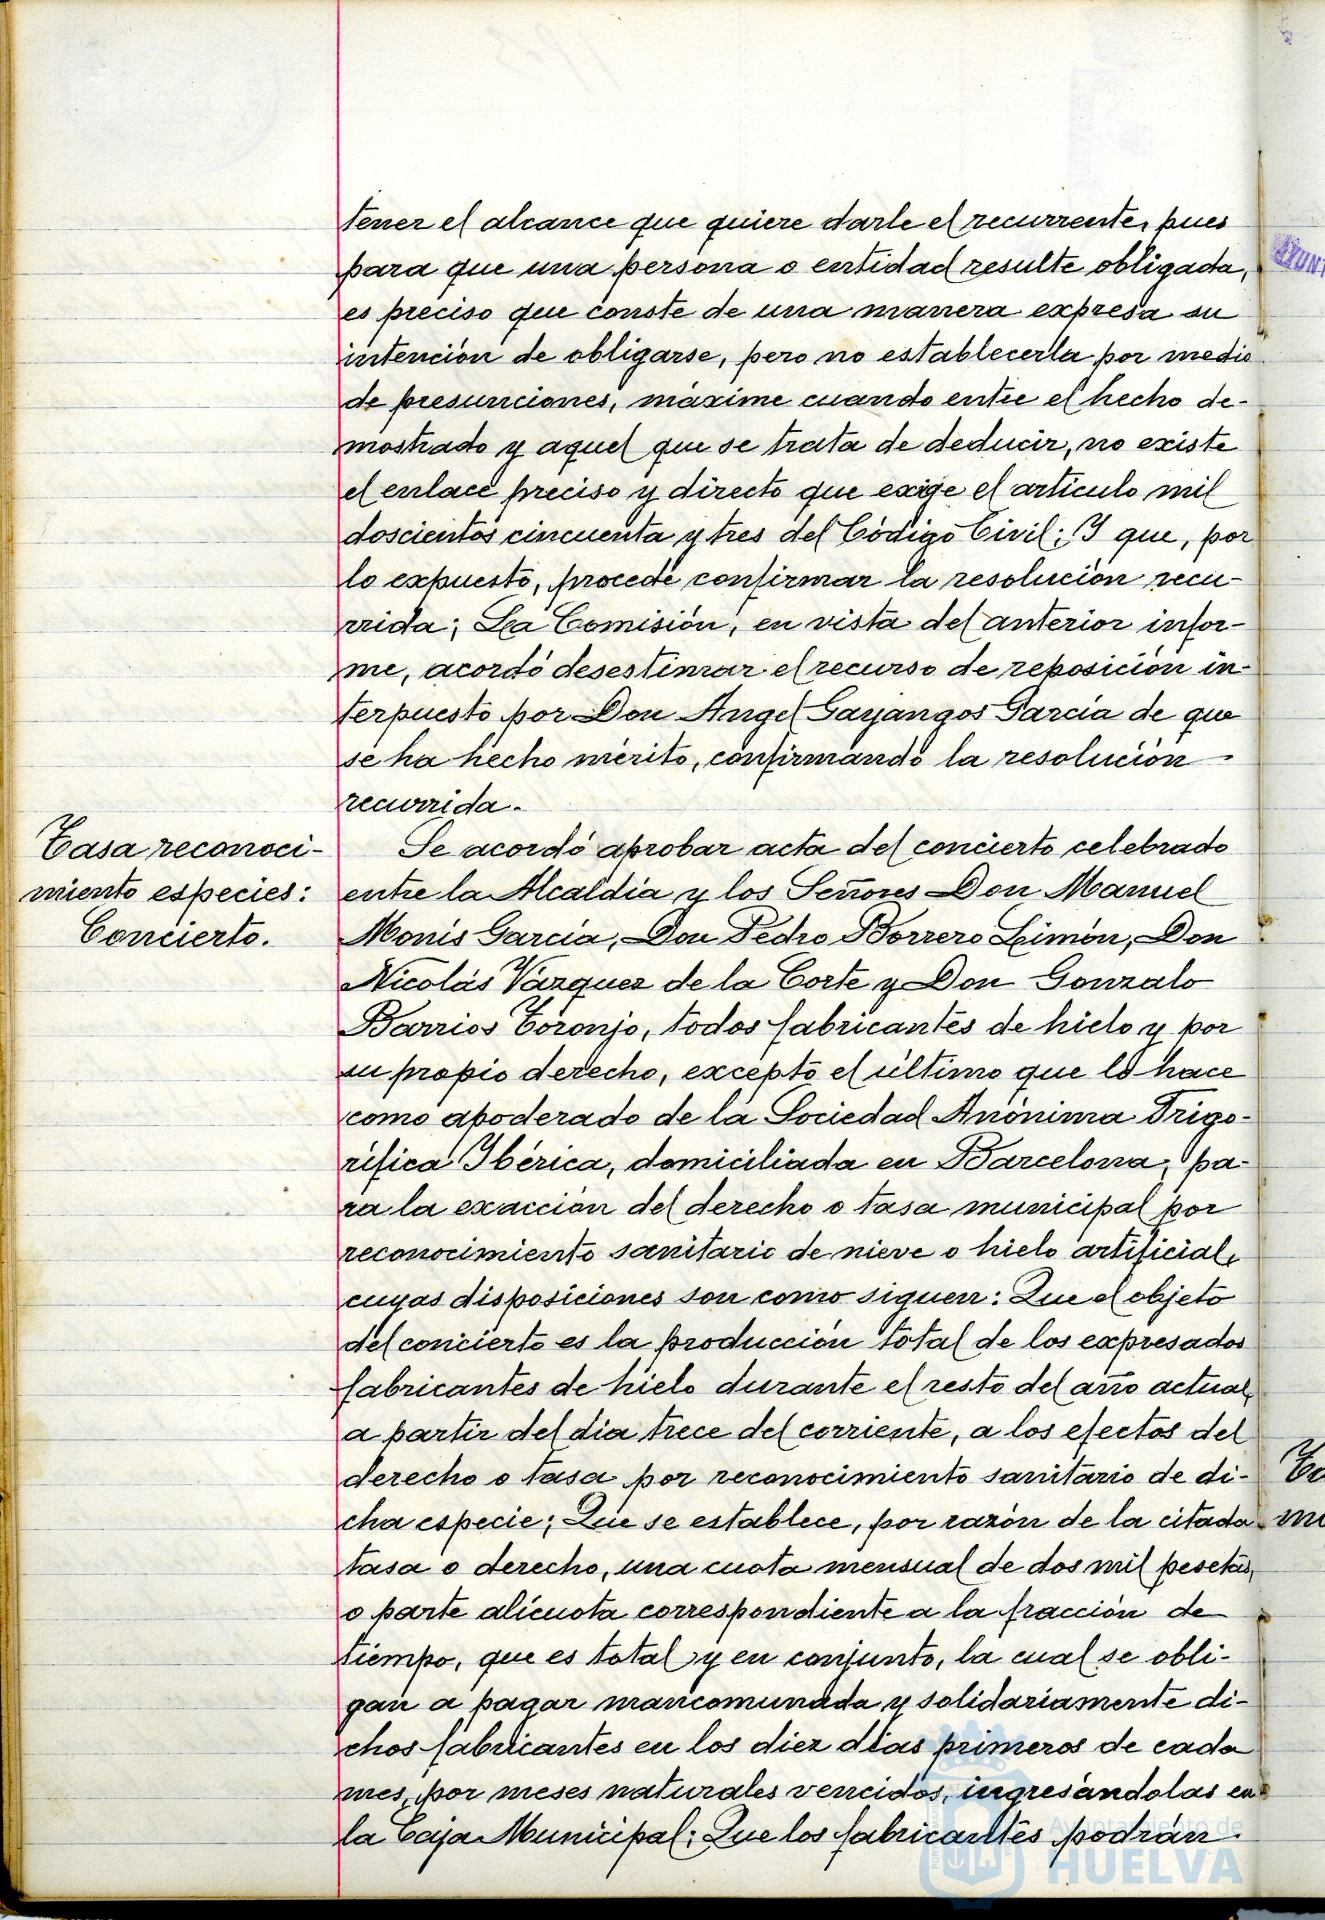 tener el alcance que quiere darle el recurrente, pues
para que una persona o entidad resulte obligada,
es preciso que conste de una manera expresa su
intención de obligarse, pero no establecerla por medio
de presunciones, máxime cuando entre el hecho de-
mostrado y aquel que se trata de deducir, no existe
el enlace preciso y directo que exige el artículo mil
doscientos cincuenta y tres del Código Civil; Y que, por
lo expuesto, procede confirmar la resolución recu-
rrida; La Comisión, en vista del anterior infor-
me, acordó desestimar el recurso de reposición in-
terpuesto por Don Angel Gayangos García de que
se ha hecho mérito, confirmando la resolución
recurrida.
Tasa reconoci-
miento especies:
Concierto.
Se acordó aprobar acta del concierto celebrado
entre la Alcaldía y los Señores Don Manuel
Monís García, Don Pedro Borrero Limón, Don
Nicolás Vázquez de la Corte y Don Gonzalo
Barrios Toronjo, todos fabricantes de hielo y por
su propio derecho, excepto el último que lo hace
como apoderado de la Sociedad Anónima Frigo-
rífica Ibérica, domiciliada en Barcelona, pa-
ra la exacción del derecho o tasa municipal por
reconocimiento sanitario de nieve o hielo artificial,
cuyas disposiciones son como siguen: Que el objeto
del concierto es la producción total de los expresados
fabricantes de hielo durante el resto del año actual,
a partir del día trece del corriente, a los efectos del
derecho o tasa por reconocimiento sanitario de di-
cha especie; Que se establece, por razón de la citada
tasa o derecho, una cuota mensual de dos mil pesetas,
o parte alícuota correspondiente a la fracción de
tiempo, que es total y en conjunto, la cual se obli-
gan a pagar mancomunada y solidariamente di-
chos fabricantes en los diez días primeros de cada
mes, por meses naturales vencidos, ingresándolas en
la Caja Municipal; Que los fabricantes podrán
Ayuntamiento de
HUELVA